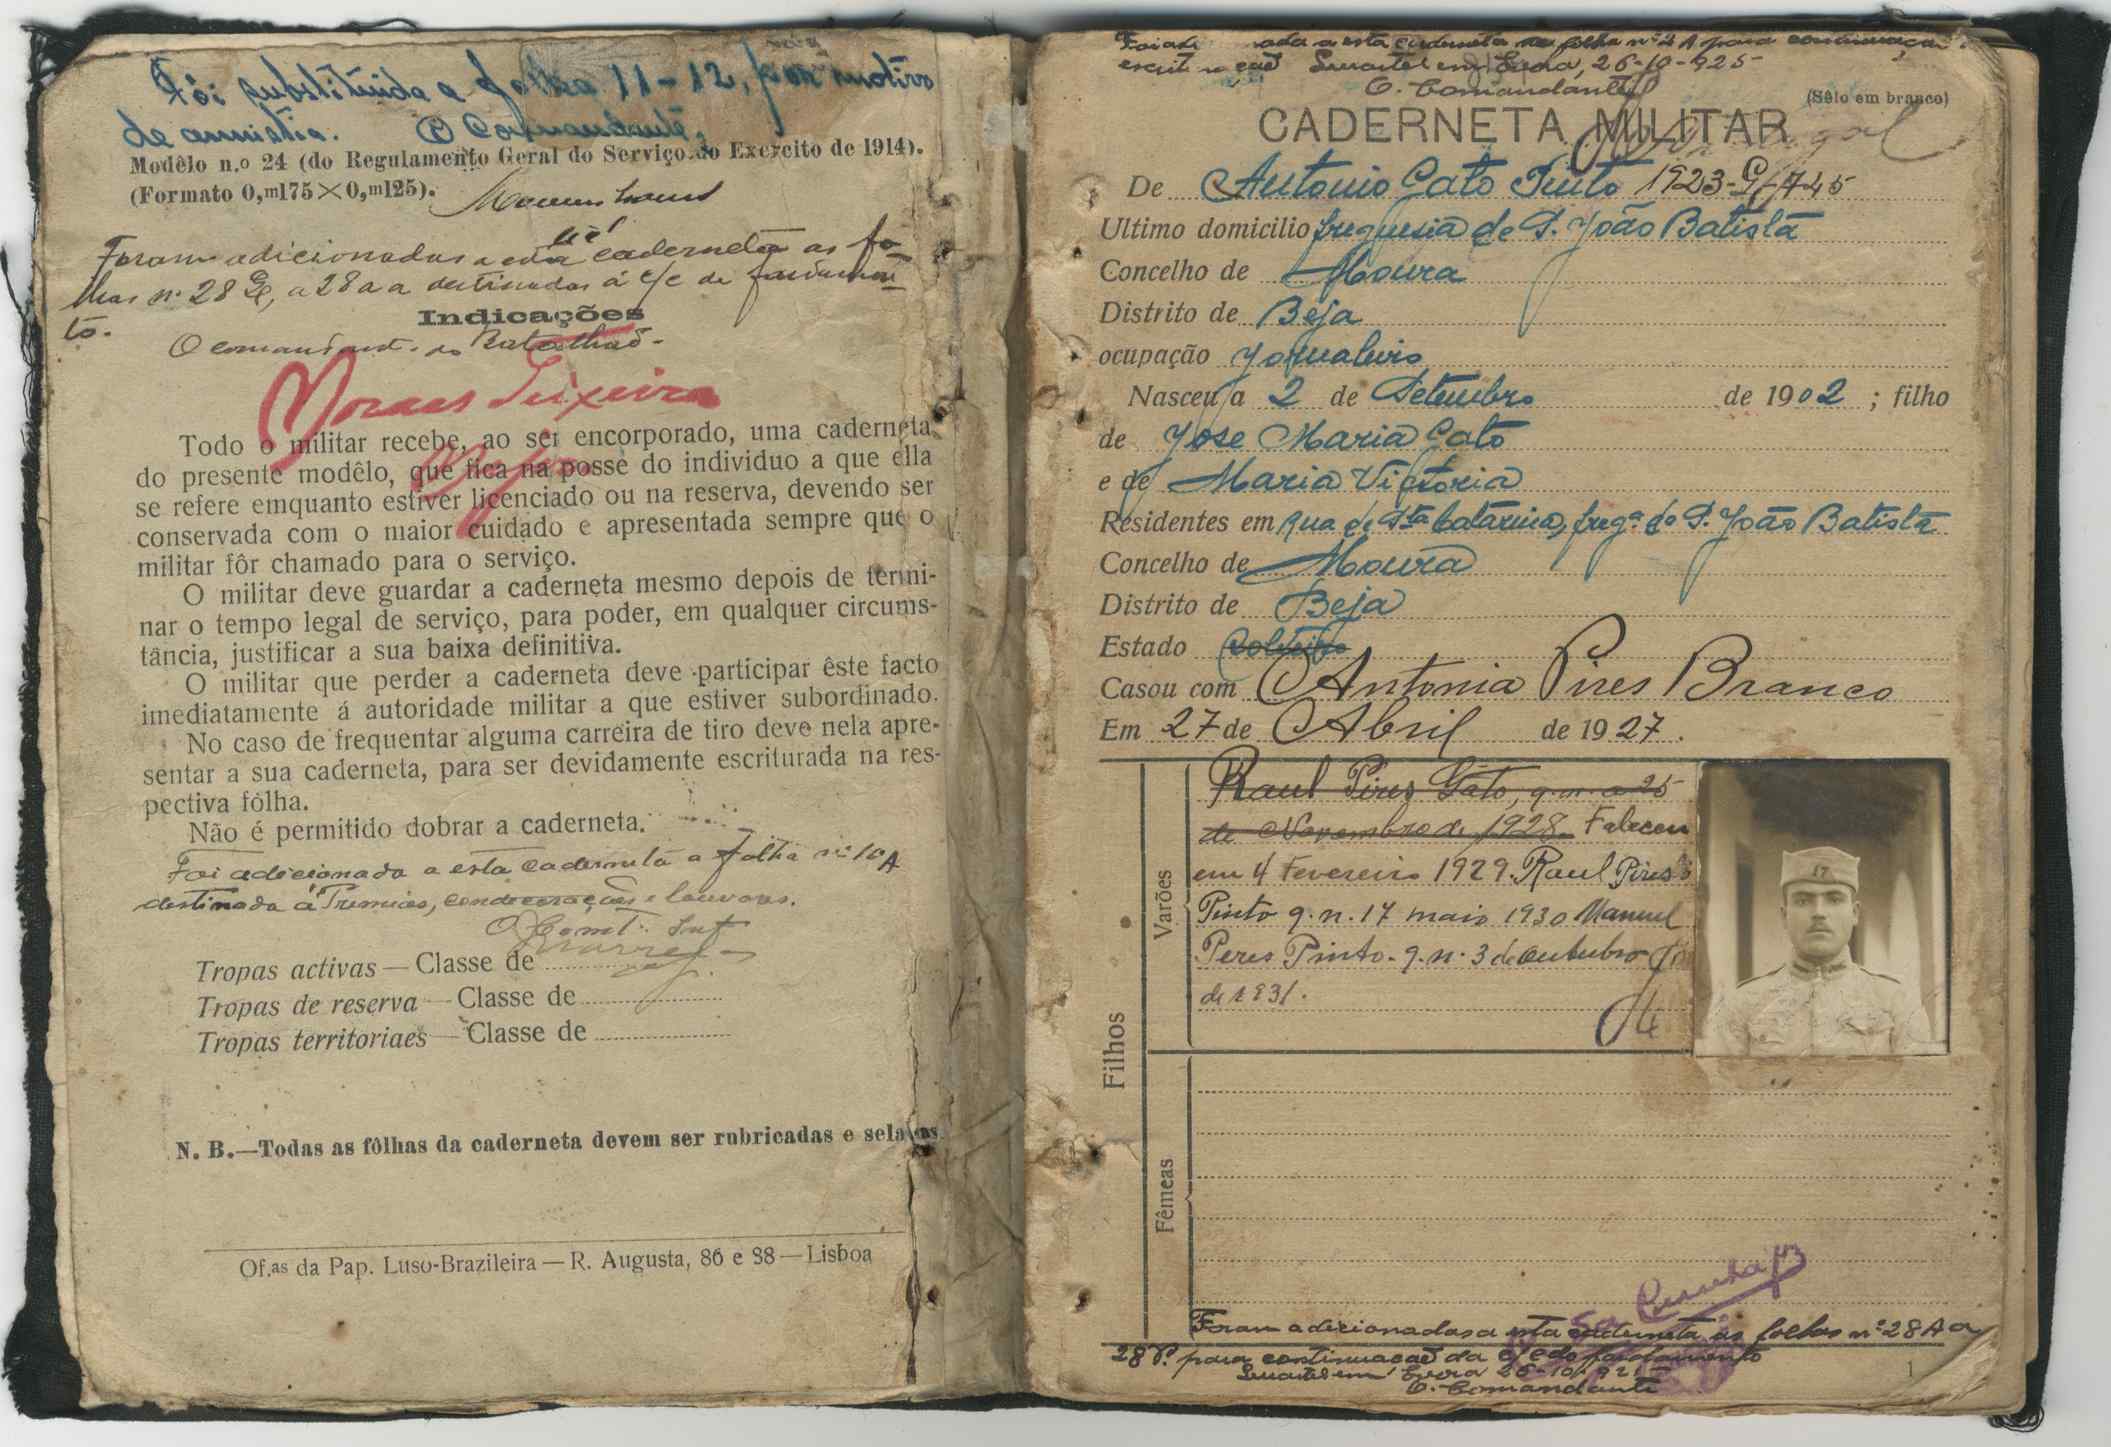 Foi substituida a folha 11-12, por motivo
de amnistia. O Comandante,
Modêlo n.º 24 (do Regulamento Geral do Serviço do Exercito de 1914).
(Formato 0,m175×0,m125).
Foram adicionadas a esta caderneta as fo-
lhas nº 28 a 28 a a destinadas á c/c de fardamen-
to.
Indicações
O comandante do Batalhão
Moraes Teixeira
Todo o militar recebe, ao ser encorporado, uma caderneta
do presente modêlo, que fica na posse do individuo a que ella
se refere emquanto estiver licenciado ou na reserva, devendo ser
conservada com o maior cuidado e apresentada sempre que o
militar fôr chamado para o serviço.
O militar deve guardar a caderneta mesmo depois de termi-
nar o tempo legal de serviço, para poder, em qualquer circums-
tância, justificar a sua baixa definitiva.
O militar que perder a caderneta deve participar êste facto
imediatamente á autoridade militar a que estiver subordinado.
No caso de frequentar alguma carreira de tiro deve nela apre-
sentar a sua caderneta, para ser devidamente escriturada na res-
pectiva fôlha.
Não é permitido dobrar a caderneta.
Foi adicionada a esta caderneta a folha nº 10 A
destinada a Premios, condecorações e louvores.
O Comt.
Tropas activas — Classe de
Tropas de reserva — Classe de
Tropas territoriaes — Classe de
N. B.—Todas as fôlhas da caderneta devem ser rubricadas e seladas
Of.as da Pap. Luso-Brazileira — R. Augusta, 86 e 88 — Lisboa
a esta caderneta a folha nº 2 A para continuação
Quartel em Evora, 26-10-925
O. Comandante
(Sêlo em branco)
CADERNETA MILITAR
De Antonio Gato Pinto 1923-G/745
Ultimo domicilio freguesia de S. João Batista
Concelho de Moura
Distrito de Beja
ocupação Jornaleiro
Nasceu a 2 de Setembro de 1902 ; filho
de Jose Maria Gato
e de Maria Victoria
Residentes em Rua de Sta Catarina, freg.ª de S. João Batista
Concelho de Moura
Distrito de Beja
Estado Solteiro
Casou com Antonia Pires Branco
Em 27 de Abril de 1927.
Filhos
Varões
Raul Pires Gato, q. n. a 25
de Novembro de 1928. Faleceu
em 4 Fevereiro 1929. Raul Pires
Pinto q. n. 17 maio 1930 Manuel
Peres Pinto. q. n. 3 de Outubro
de 1931.
17
Fêmeas
Foram adicionadas a esta caderneta as folhas nº 28 A a
28 para continuação da c/c do fardamento
Quartel em Evora 26-10-925
O. Comandante
1